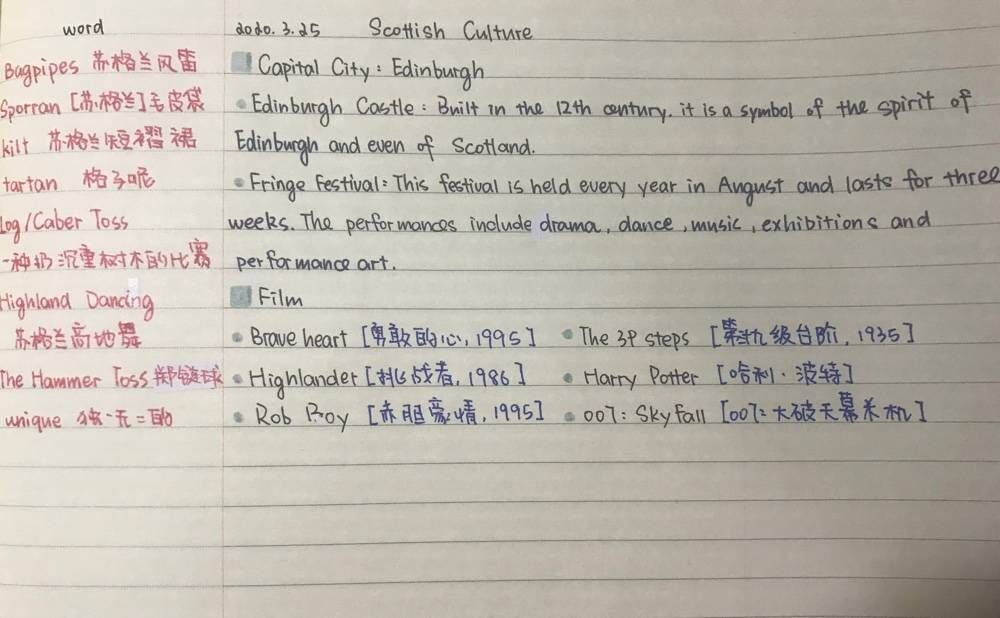 word 2020.3.25 Scottish Culture
Bagpipes 苏格兰风雷 Capital City: Edinburgh
Sporran [苏格兰]毛皮袋 • Edinburgh Castle: Built in the 12th century. it is a symbol of the spirit of
kilt 苏格兰短褶裙 Edinburgh and even of Scotland.
tartan 格子呢 • Fringe Festival: This festival is held every year in August and lasts for three
Log/Caber Toss weeks. The performances include drama, dance, music, exhibitions and
一种扔沉重树木的比赛 performance art.
Highland Dancing Film
苏格兰高地舞 • Brave heart [勇敢的心, 1995] • The 39 steps [第卅九级台阶, 1935]
The Hammer Toss 掷链球 • Highlander [挑战者, 1986] • Harry Potter [哈利·波特]
unique 独一无二的 • Rob Roy [赤胆豪情, 1995] • 007: Sky fall [007:大破天幕杀机]